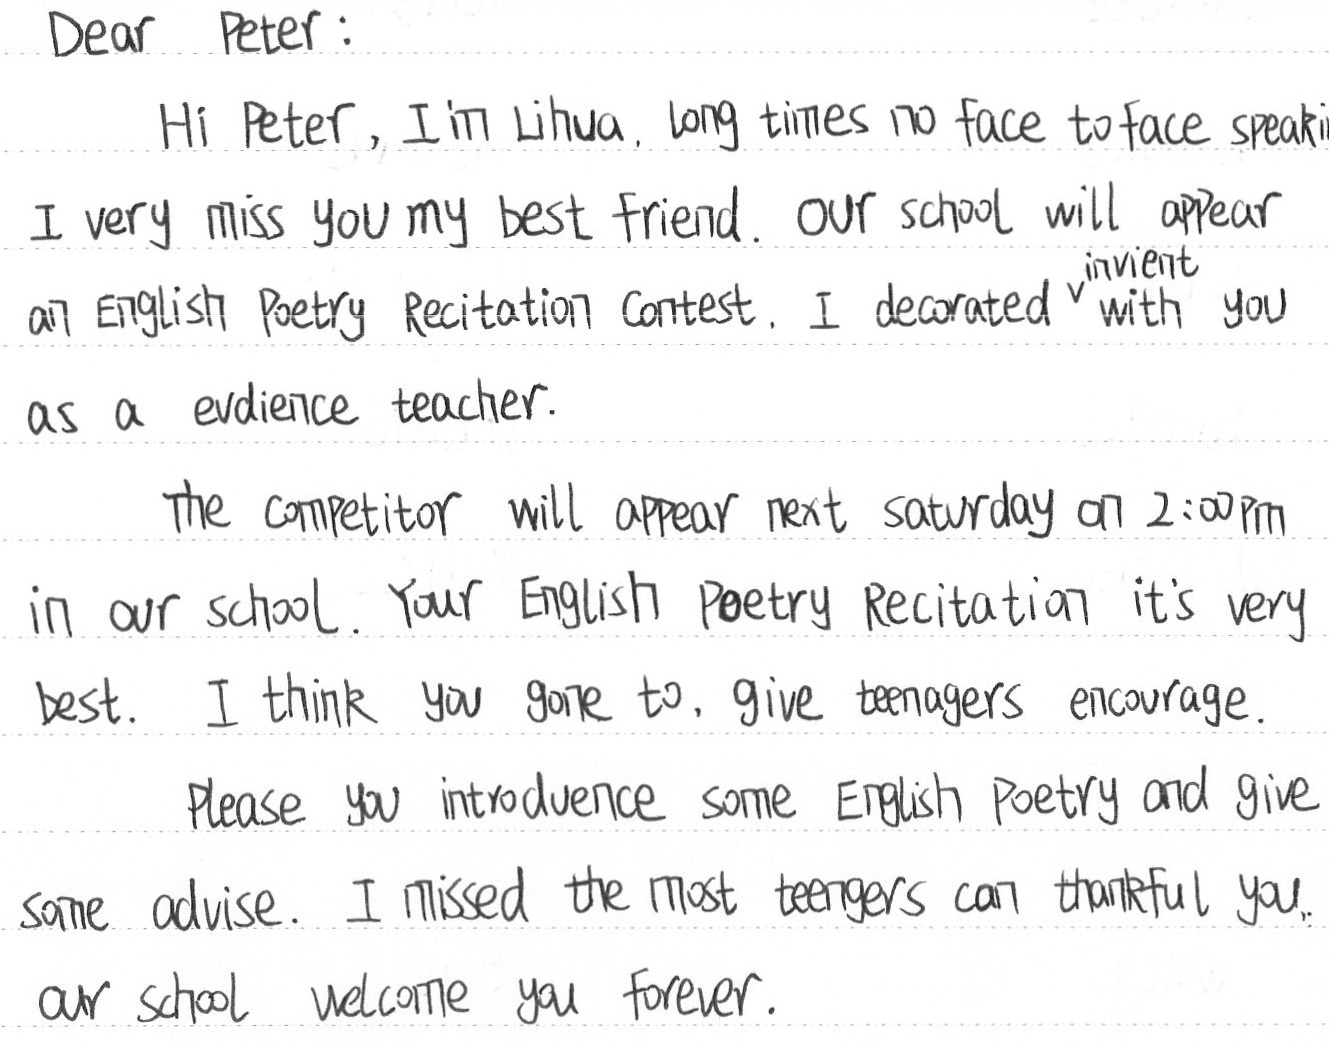 Dear Peter:
Hi Peter, I'm Lihua. long times no face to face speaki
I very miss you my best friend. our school will appear
an English Poetry Recitation Contest. I decorated invient with you
as a evdience teacher.
The competitor will appear next saturday on 2:00 pm
in our school. Your English Poetry Recitation it's very
best. I think you gone to. give teenagers encourage.
Please you introduence some English Poetry and give
some advise. I missed the most teengers can thankful you.
our school welcome you forever.